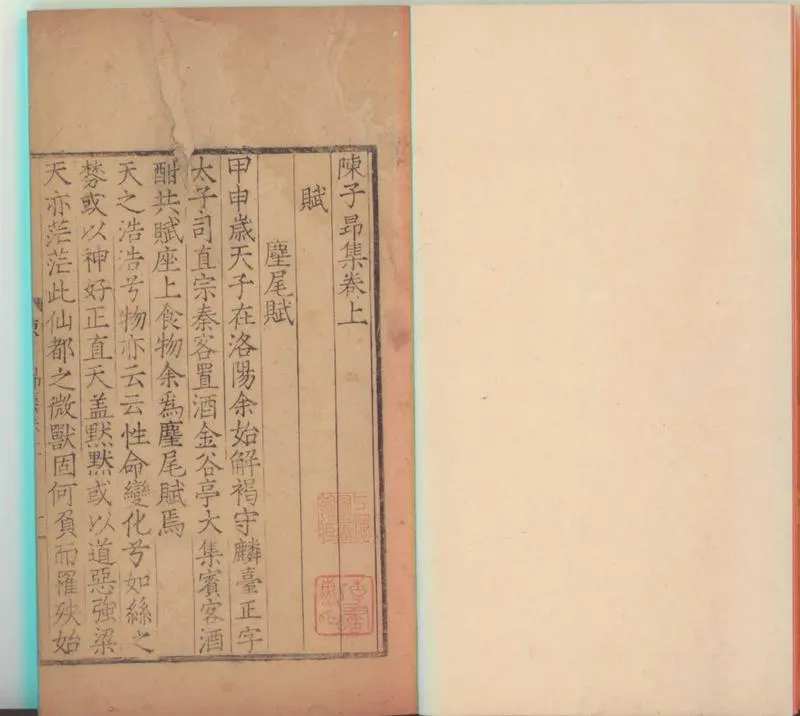 陳子昻集卷上
賦
麈尾賦
甲申歲天子在洛陽余始解褐守麟臺正字
太子司直宗秦客置酒金谷亭大集賓客酒
酣共賦座上食物余爲麈尾賦焉
天之浩浩兮物亦云云性命變化兮如絲之
棼或以神好正直天盖黙黙或以道惡強梁
天亦茫茫此仙都之微獸固何負而羅殃始